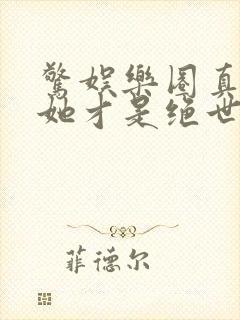 驚娱樂圈真
她才是绝世
菲德尔